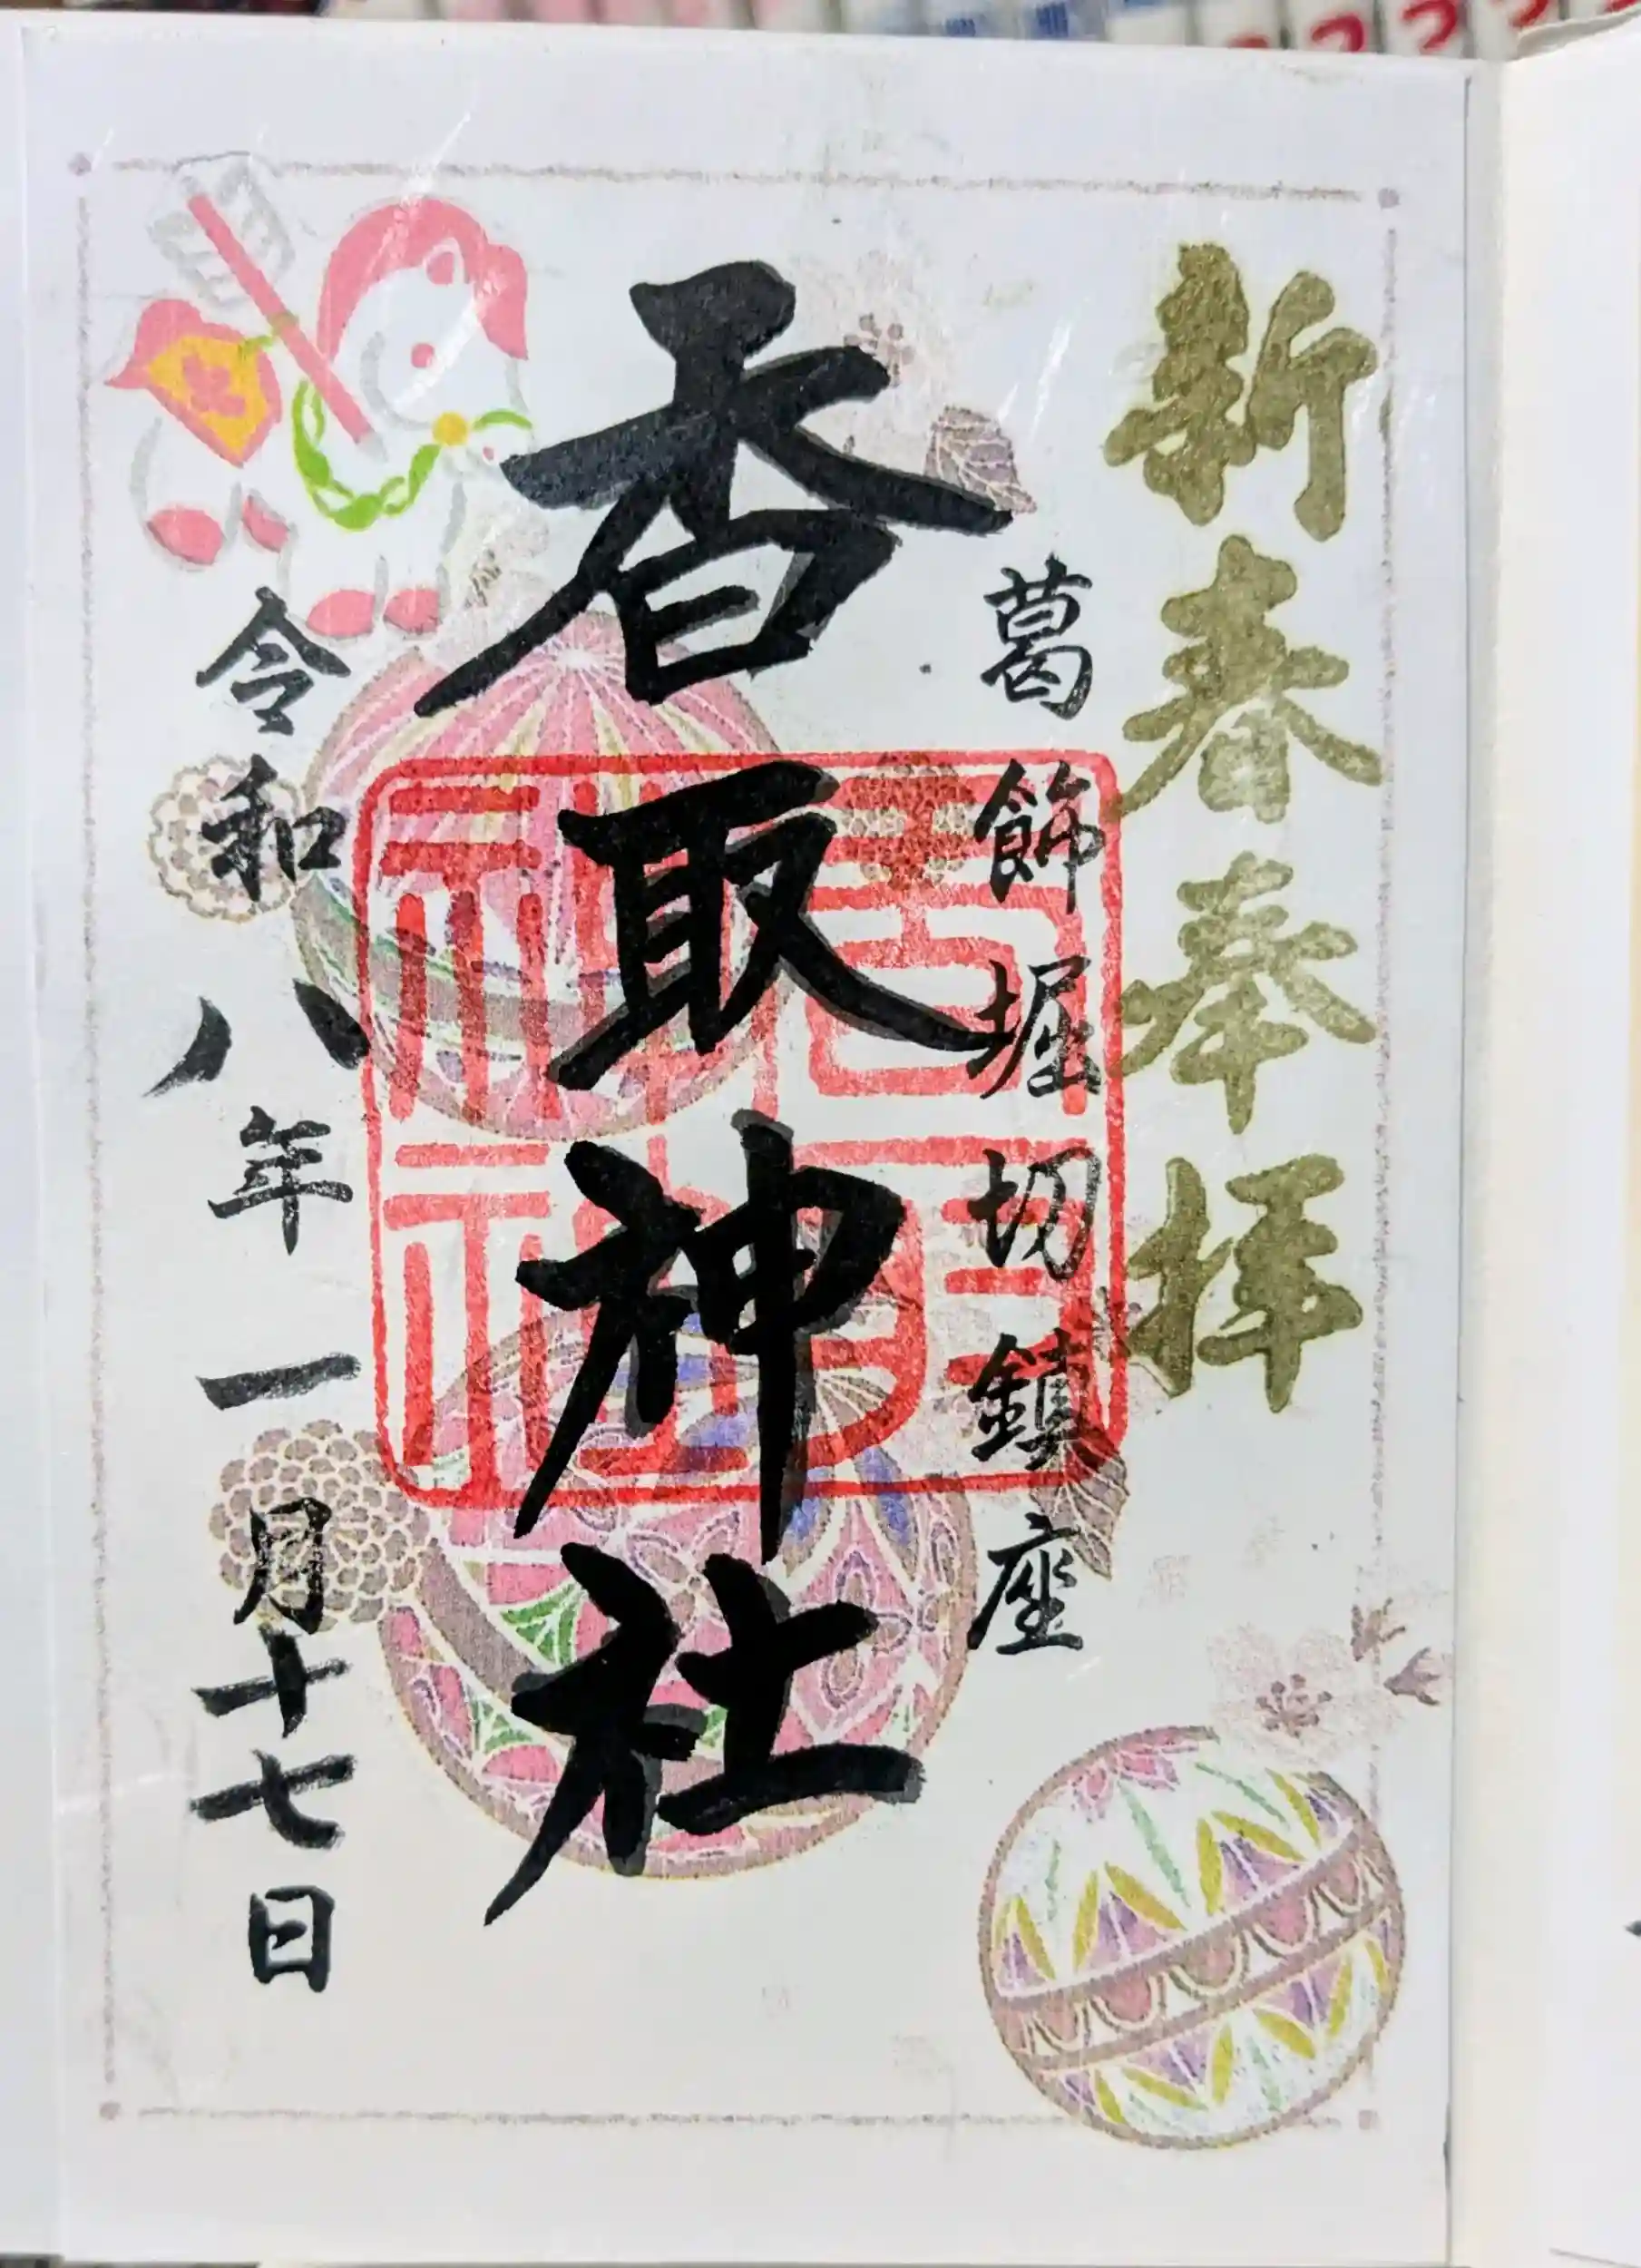 新春奉拝
葛飾堀切鎮座
香取神社
香取神社
令和八年一月十七日